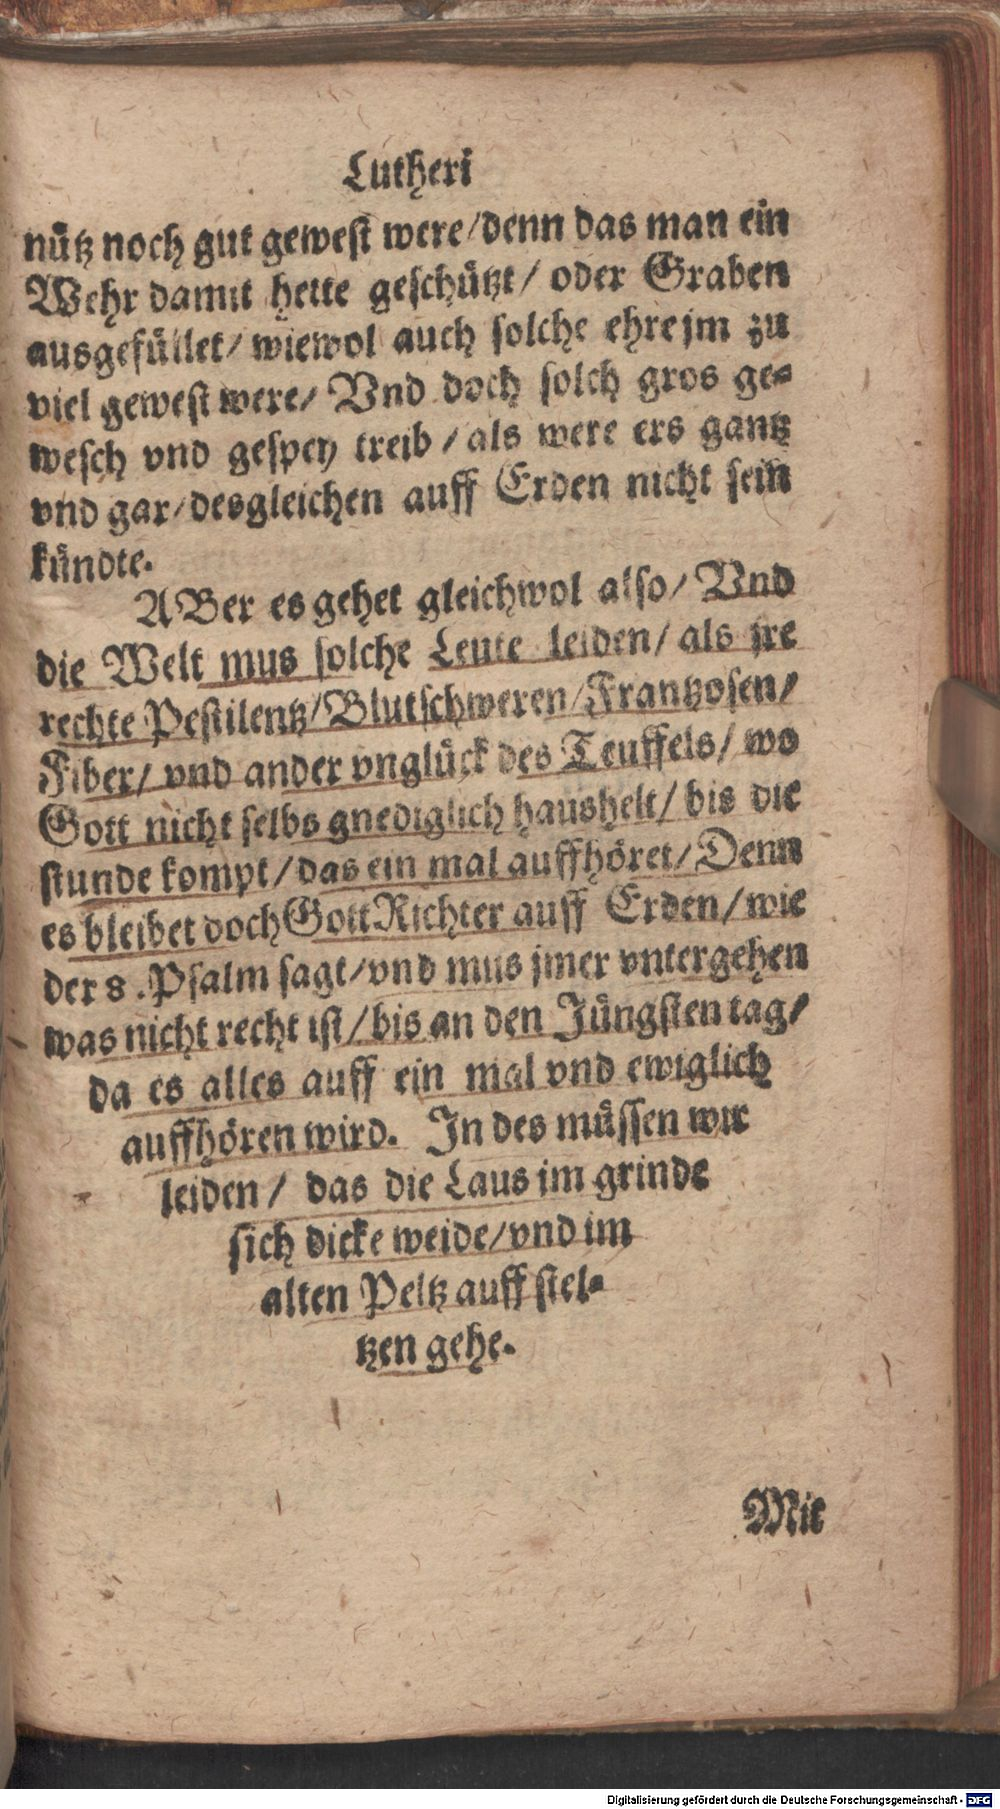 Lutheri
nütz noch gut gewest were/denn das man ein
Wehr damit hette geschützt/ oder Graben
ausgefüllet/ wiewol auch solche ehre jm zu
viel gewest were/ Vnd doch solch gros ge-
wesch vnd gespey treib/als were ers gantz
vnd gar/desgleichen auff Erden nicht sein
kündte.
ABer es gehet gleichwol also/ Vnd
die Welt mus solche Leute leiden/ als jre
rechte Pestilentz/Blutschweren/Frantzosen/
Fiber/ vnd ander vnglück des Teuffels/ wo
Gott nicht selbs gnediglich haushelt/ bis die
stunde kompt/das ein mal auffhöret/ Denn
es bleibet doch Gott Richter auff Erden/ wie
der 8. Psalm sagt/vnd mus jmer vntergehen
was nicht recht ist/ bis an den Jüngsten tag/
da es alles auff ein mal vnd ewiglich
auffhören wird. In des müssen wir
leiden/ das die Laus im grinde
sich dicke weide/vnd im
alten Peltz auff stel-
tzen gehe.
Mit
Digitalisierung gefördert durch die Deutsche Forschungsgemeinschaft - DFG